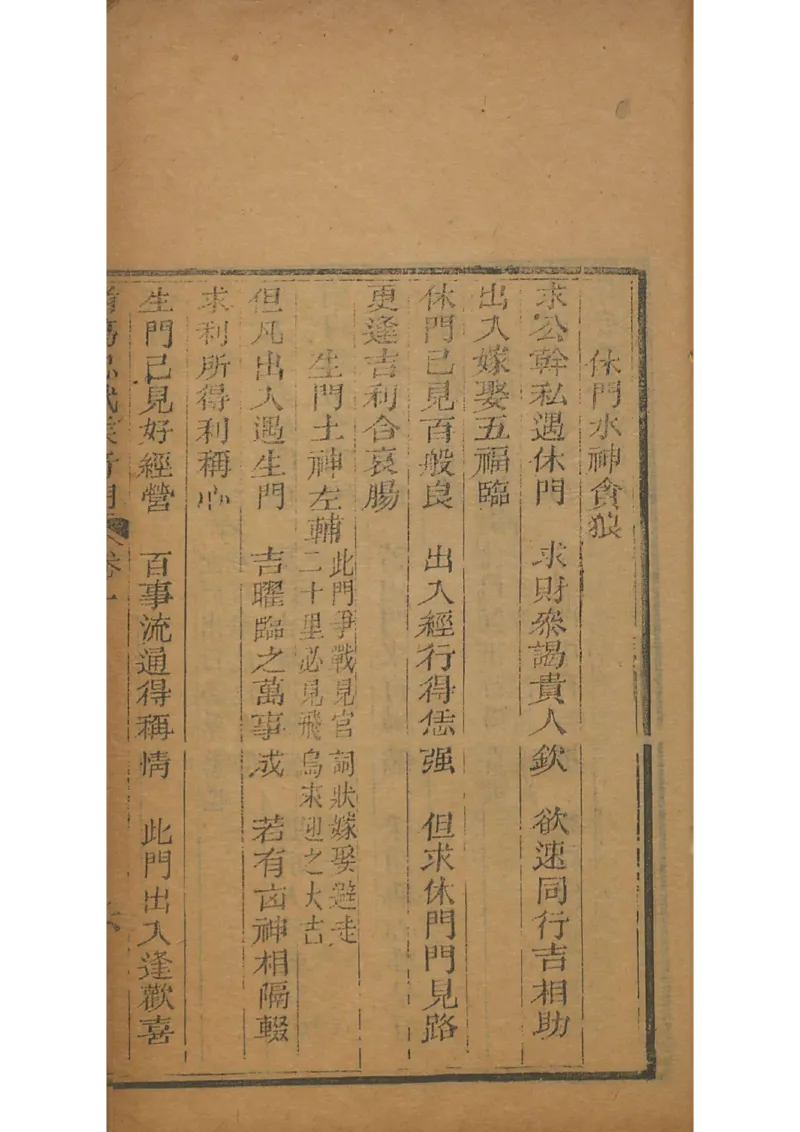 休門水神貪狼
求公幹私遇休門　求財叅謁貴人欽　欲速同行吉相助
出入嫁娶五福臨
休門已見百般良　出入經行得恁强　但求休門門見路
更逢吉利合衷腸
生門土神左輔
此門爭戰見官詞狀嫁娶避走
二十里必見飛鳥來迎之大吉
但凡出入遇生門　吉曜臨之萬事成　若有凶神相隔輟
求利所得利稱心
生門已見好經營　百事流通得稱情　此門出入逢歡喜
卷一